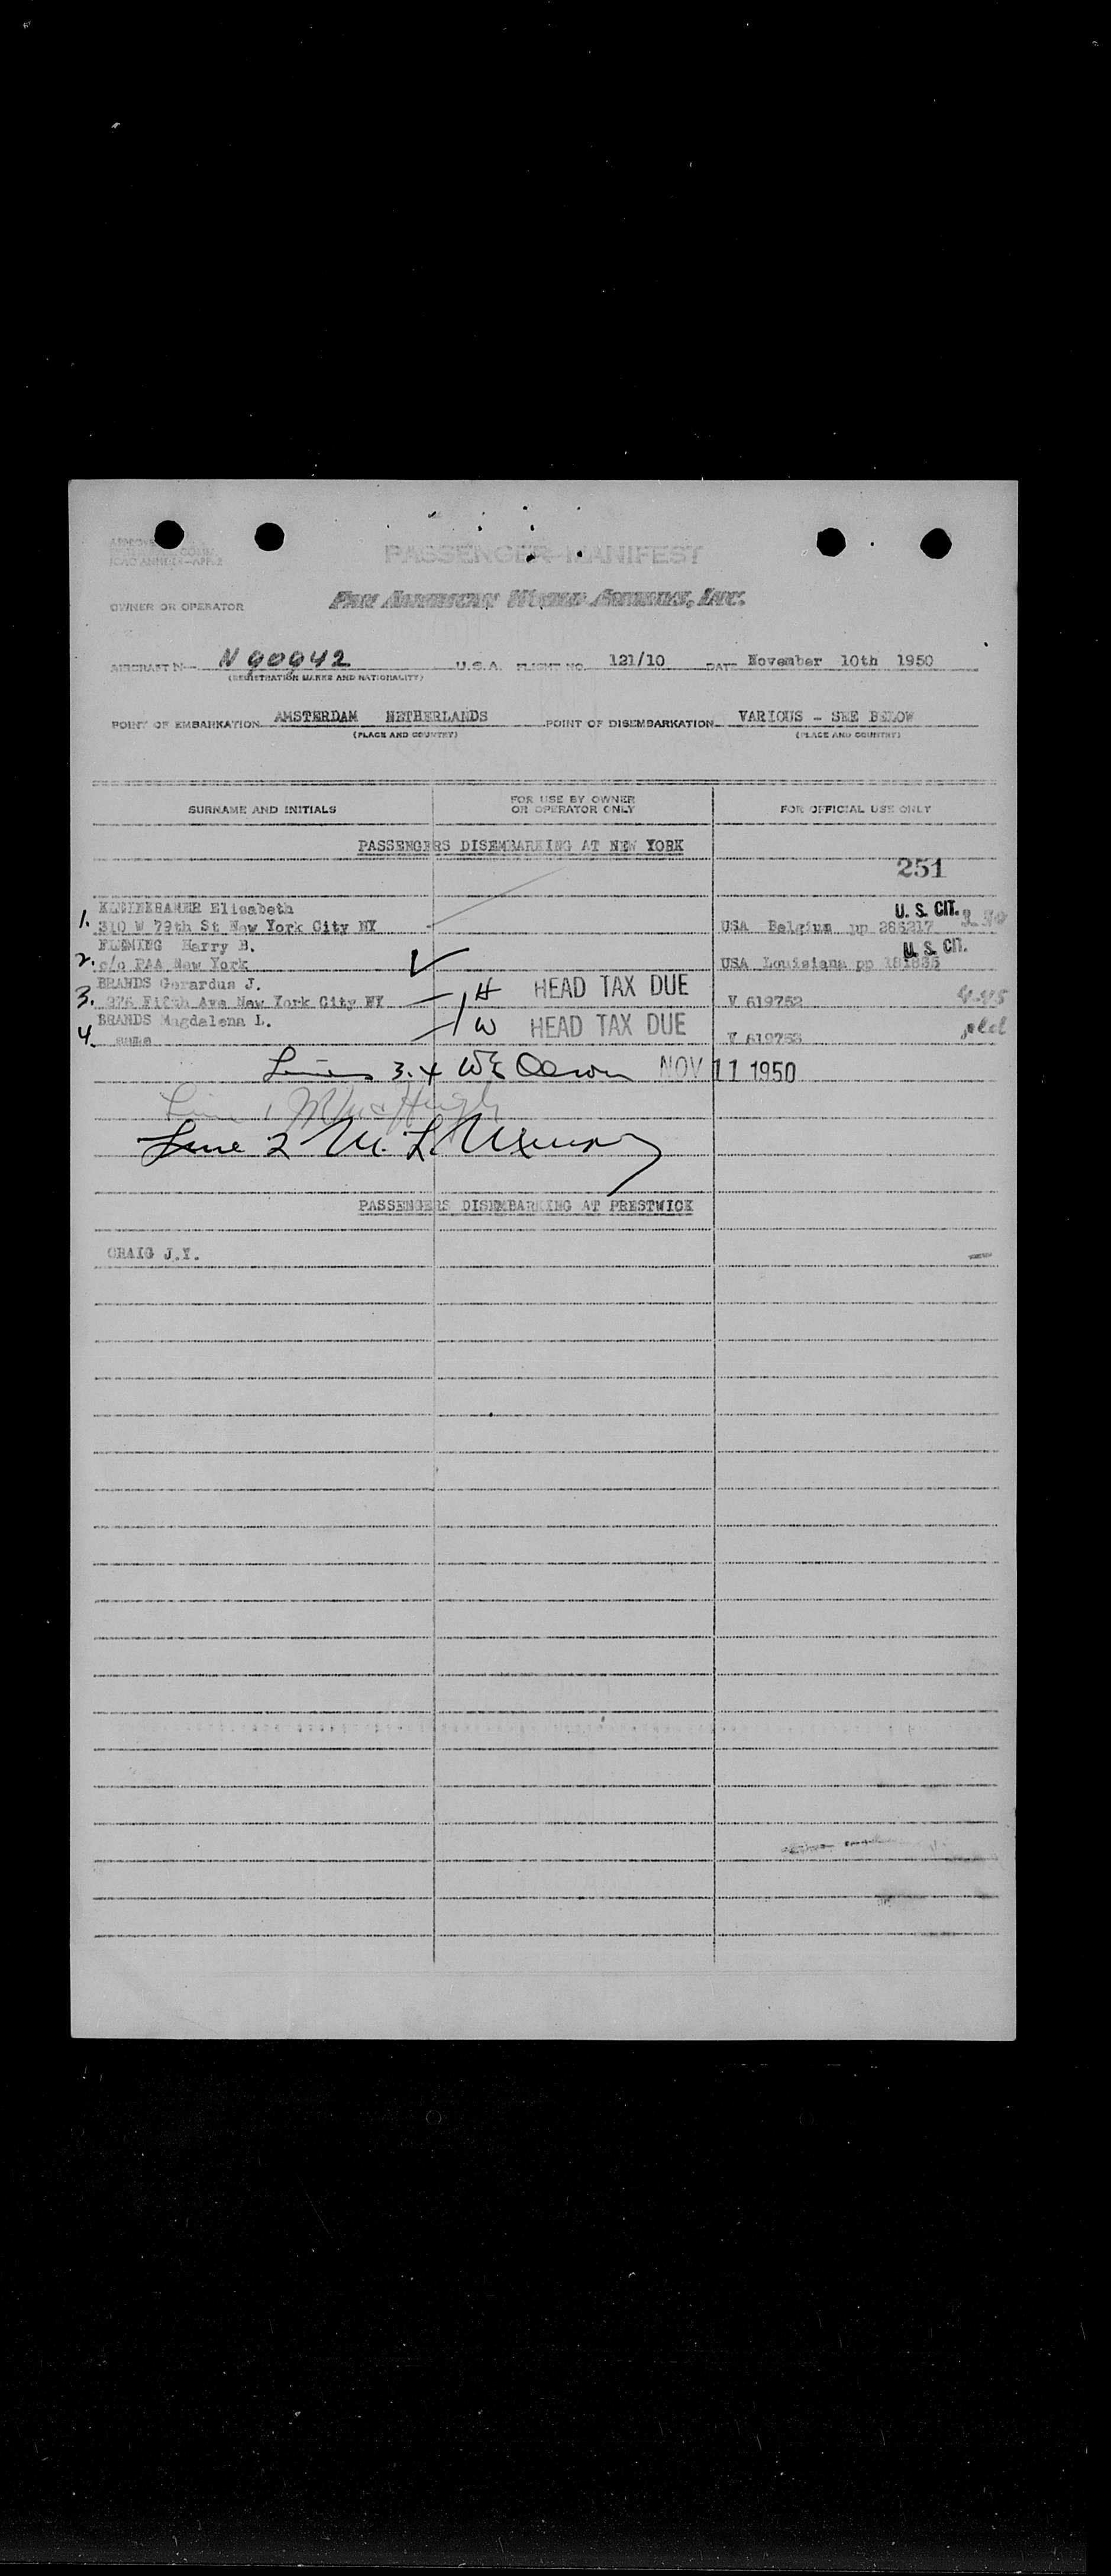 PASSENGER MANIFEST
OWNER OR OPERATOR
PAN AMERICAN WORLD AIRWAYS, INC.
AIRCRAFT N— N 90942 U.S.A. FLIGHT NO. 121/10 DATE November 10th 1950
(REGISTRATION MARKS AND NATIONALITY)
POINT OF EMBARKATION AMSTERDAM NETHERLANDS POINT OF DISEMBARKATION VARIOUS - SEE BELOW
(PLACE AND COUNTRY) (PLACE AND COUNTRY)
SURNAME AND INITIALS FOR USE BY OWNER OR OPERATOR ONLY FOR OFFICIAL USE ONLY
PASSENGERS DISEMBARKING AT NEW YORK
251
Elisabeth U. S. CIT.
1. 310 W 79th St New York City NY USA Belgium pp 286217
FLEMING Harry B. U. S. CIT.
2. c/o PAA New York USA Louisiana pp
BRANDS Gerardus J. H HEAD TAX DUE
3. Fifth Ave New York City NY V 619752
BRANDS Magdalena L. W HEAD TAX DUE
4. same V 619753
Lines 3.4 NOV 11 1950
Line 1
Line 2 M. L.
PASSENGERS DISEMBARKING AT PRESTWICK
CRAIG J.Y.